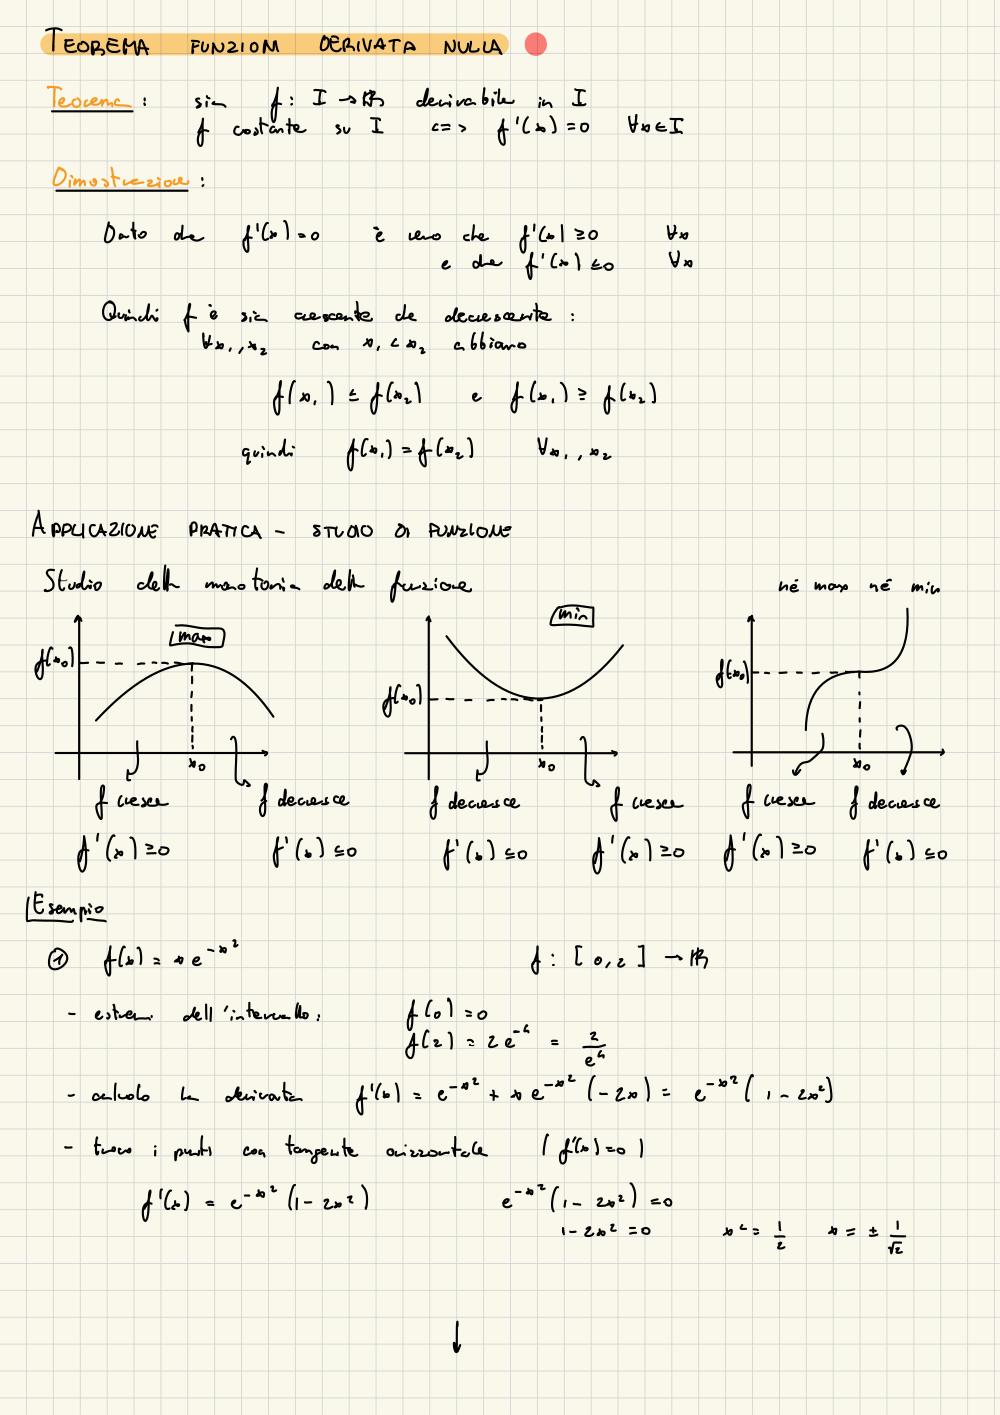 TEOREMA FUNZIONI DERIVATA NULLA
Teorema : sia f : I → ℝ derivabile in I
f costante su I <=> f'(x) = 0 ∀x∈I
Dimostrazione :
Dato che f'(x) = 0 è vero che f'(x) ≥ 0 ∀x
e che f'(x) ≤ 0 ∀x
Quindi f è sia crescente che decrescente :
∀x₁, x₂ con x₁ < x₂ abbiamo
f(x₁) ≤ f(x₂) e f(x₁) ≥ f(x₂)
quindi f(x₁) = f(x₂) ∀x₁, x₂
APPLICAZIONE PRATICA - STUDIO DI FUNZIONE
Studio della monotonia della funzione
né max né min
max
min
f(x₀)
f(x₀)
f(x₀)
x₀
x₀
x₀
f cresce f decresce f decresce f cresce f cresce f decresce
f'(x) ≥ 0 f'(x) ≤ 0 f'(x) ≤ 0 f'(x) ≥ 0 f'(x) ≥ 0 f'(x) ≤ 0
Esempio
① f(x) = x e^{-x²} f : [0,2] → ℝ
- estremi dell'intervallo: f(0) = 0
f(2) = 2e^{-4} = 2/e⁴
- calcolo la derivata f'(x) = e^{-x²} + x e^{-x²} (-2x) = e^{-x²} (1 - 2x²)
- trovo i punti con tangente orizzontale ( f'(x) = 0 )
f'(x) = e^{-x²} (1 - 2x²) e^{-x²} (1 - 2x²) = 0
1 - 2x² = 0 x² = 1/2 x = ± 1/√2